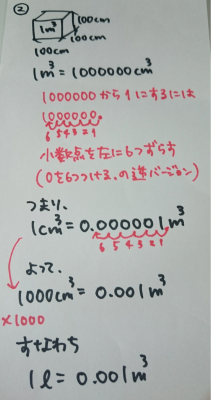 ②
1m³
100cm
100cm
100cm
1m³ = 1000000cm³
1000000から1にするには
1000000.
6 5 4 3 2 1
小数点を左に6つずらす
(0を6つつける、の逆バージョン)
つまり、
1cm³ = 0.000001m³
6 5 4 3 2 1
よって、
1000cm³ = 0.001m³
×1000
すなわち
1ℓ = 0.001m³